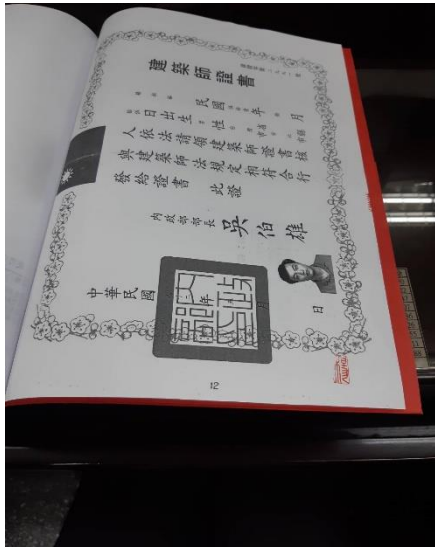 建築師證書
民國 年 月
日出生 性
人依法請領建築師證書核
與建築師法規定相符合行
發給證書 此證
內政部部長 吳伯雄
中華民國 年 月 日